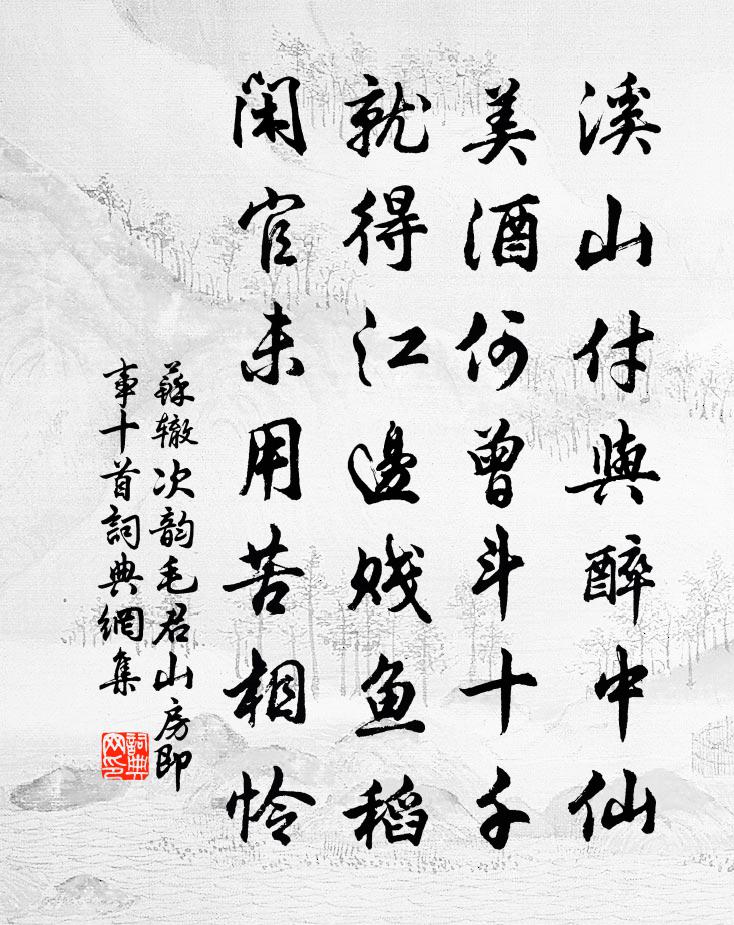 溪山付與醉中仙
美酒何曾斗十千
就得江邊賤鱼稻
閑官未用苦相怜
蘇辙次韵毛君山房即
事十首詞典網集
詞典
网印